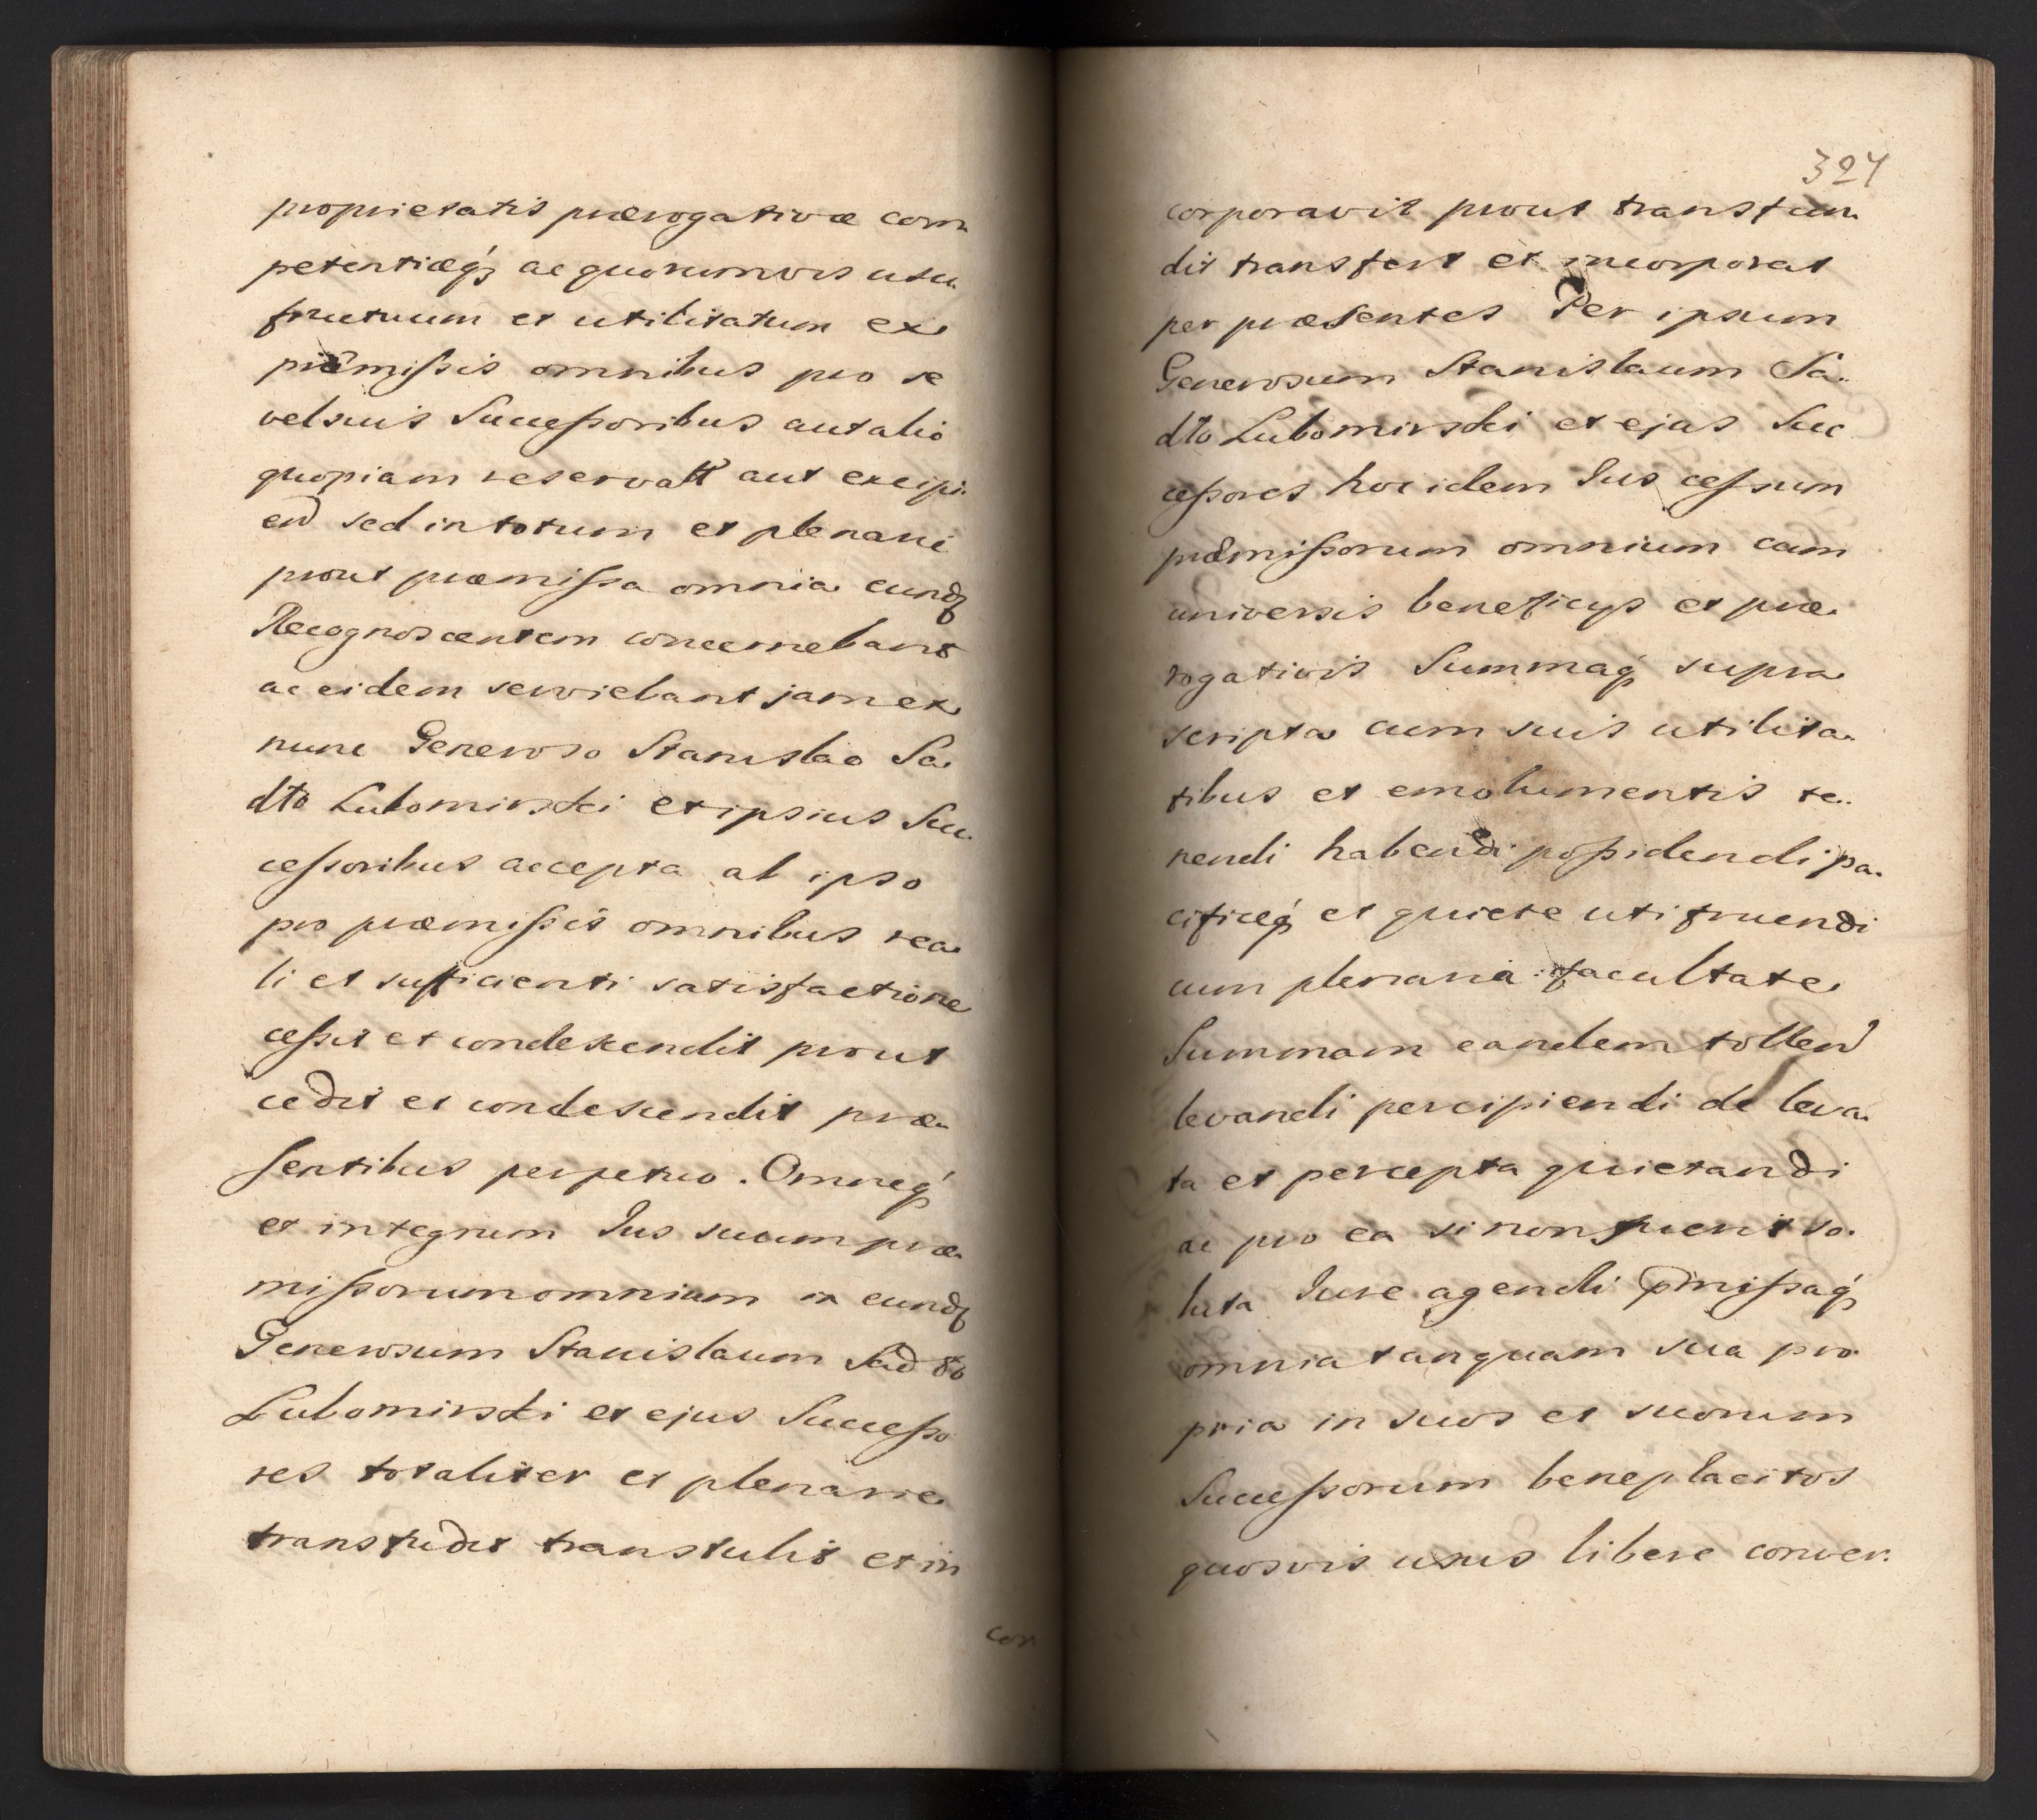 proprietatis prærogativæ com
petentiæq́ꝫ ac quorumvis usu
fructuum et utilitatum ex
præmißis omnibus pro se
vel suis Sucesßoribus aut alio
quopiam reservatt aut excipi
end sed in totum et plenarie
prout præmißa omnia eundꝫ
Recognoscentem concernebant
ac eidem serviebant jam ex
nunc Generoso Stanislao Sa
dto Lubomirski et ipsius Suc
ceßoribus accepta ab ipso
pro præmißis omnibus rea
li et sufficienti satisfactione
ceßit et condescendit prout
cedit et condescendit præ
sentibus perpetuo. Omneq́ꝫ
et integrum Jus suum præ
mißorum omnium in eundꝫ
Generosum Stanislaum Sadto
Lubomirski et ejus Succeßo
res totaliter et plenarie
transfudit transtulit et in
con
324
corporavit prout transfun
dit transfert et incorporat
per præsentes Per ipsum
Generosum Stanislaum Sa
dto Lubomirski et ejus Suc
ceßores hoc idem Jus ceßum
præmißorum omnium cum
universis beneficys et præ
rogativis Summaq́ꝫ supra
scripta cum suis utilita
tibus et emolumentis te
nendi habendi poßidendi pa
cificeq́ꝫ et quiete utifruendi
cum plenaria facultate
Summam eandem tollend
levandi percipiendi de leva
ta et percepta quietandi
ac pro ea si non fuerit so
luta Jure agendi pmißaq́ꝫ
omnia tanquam sua pro
pria in suos et suorum
Succeßorum beneplacitos
quosvis usus libere conver